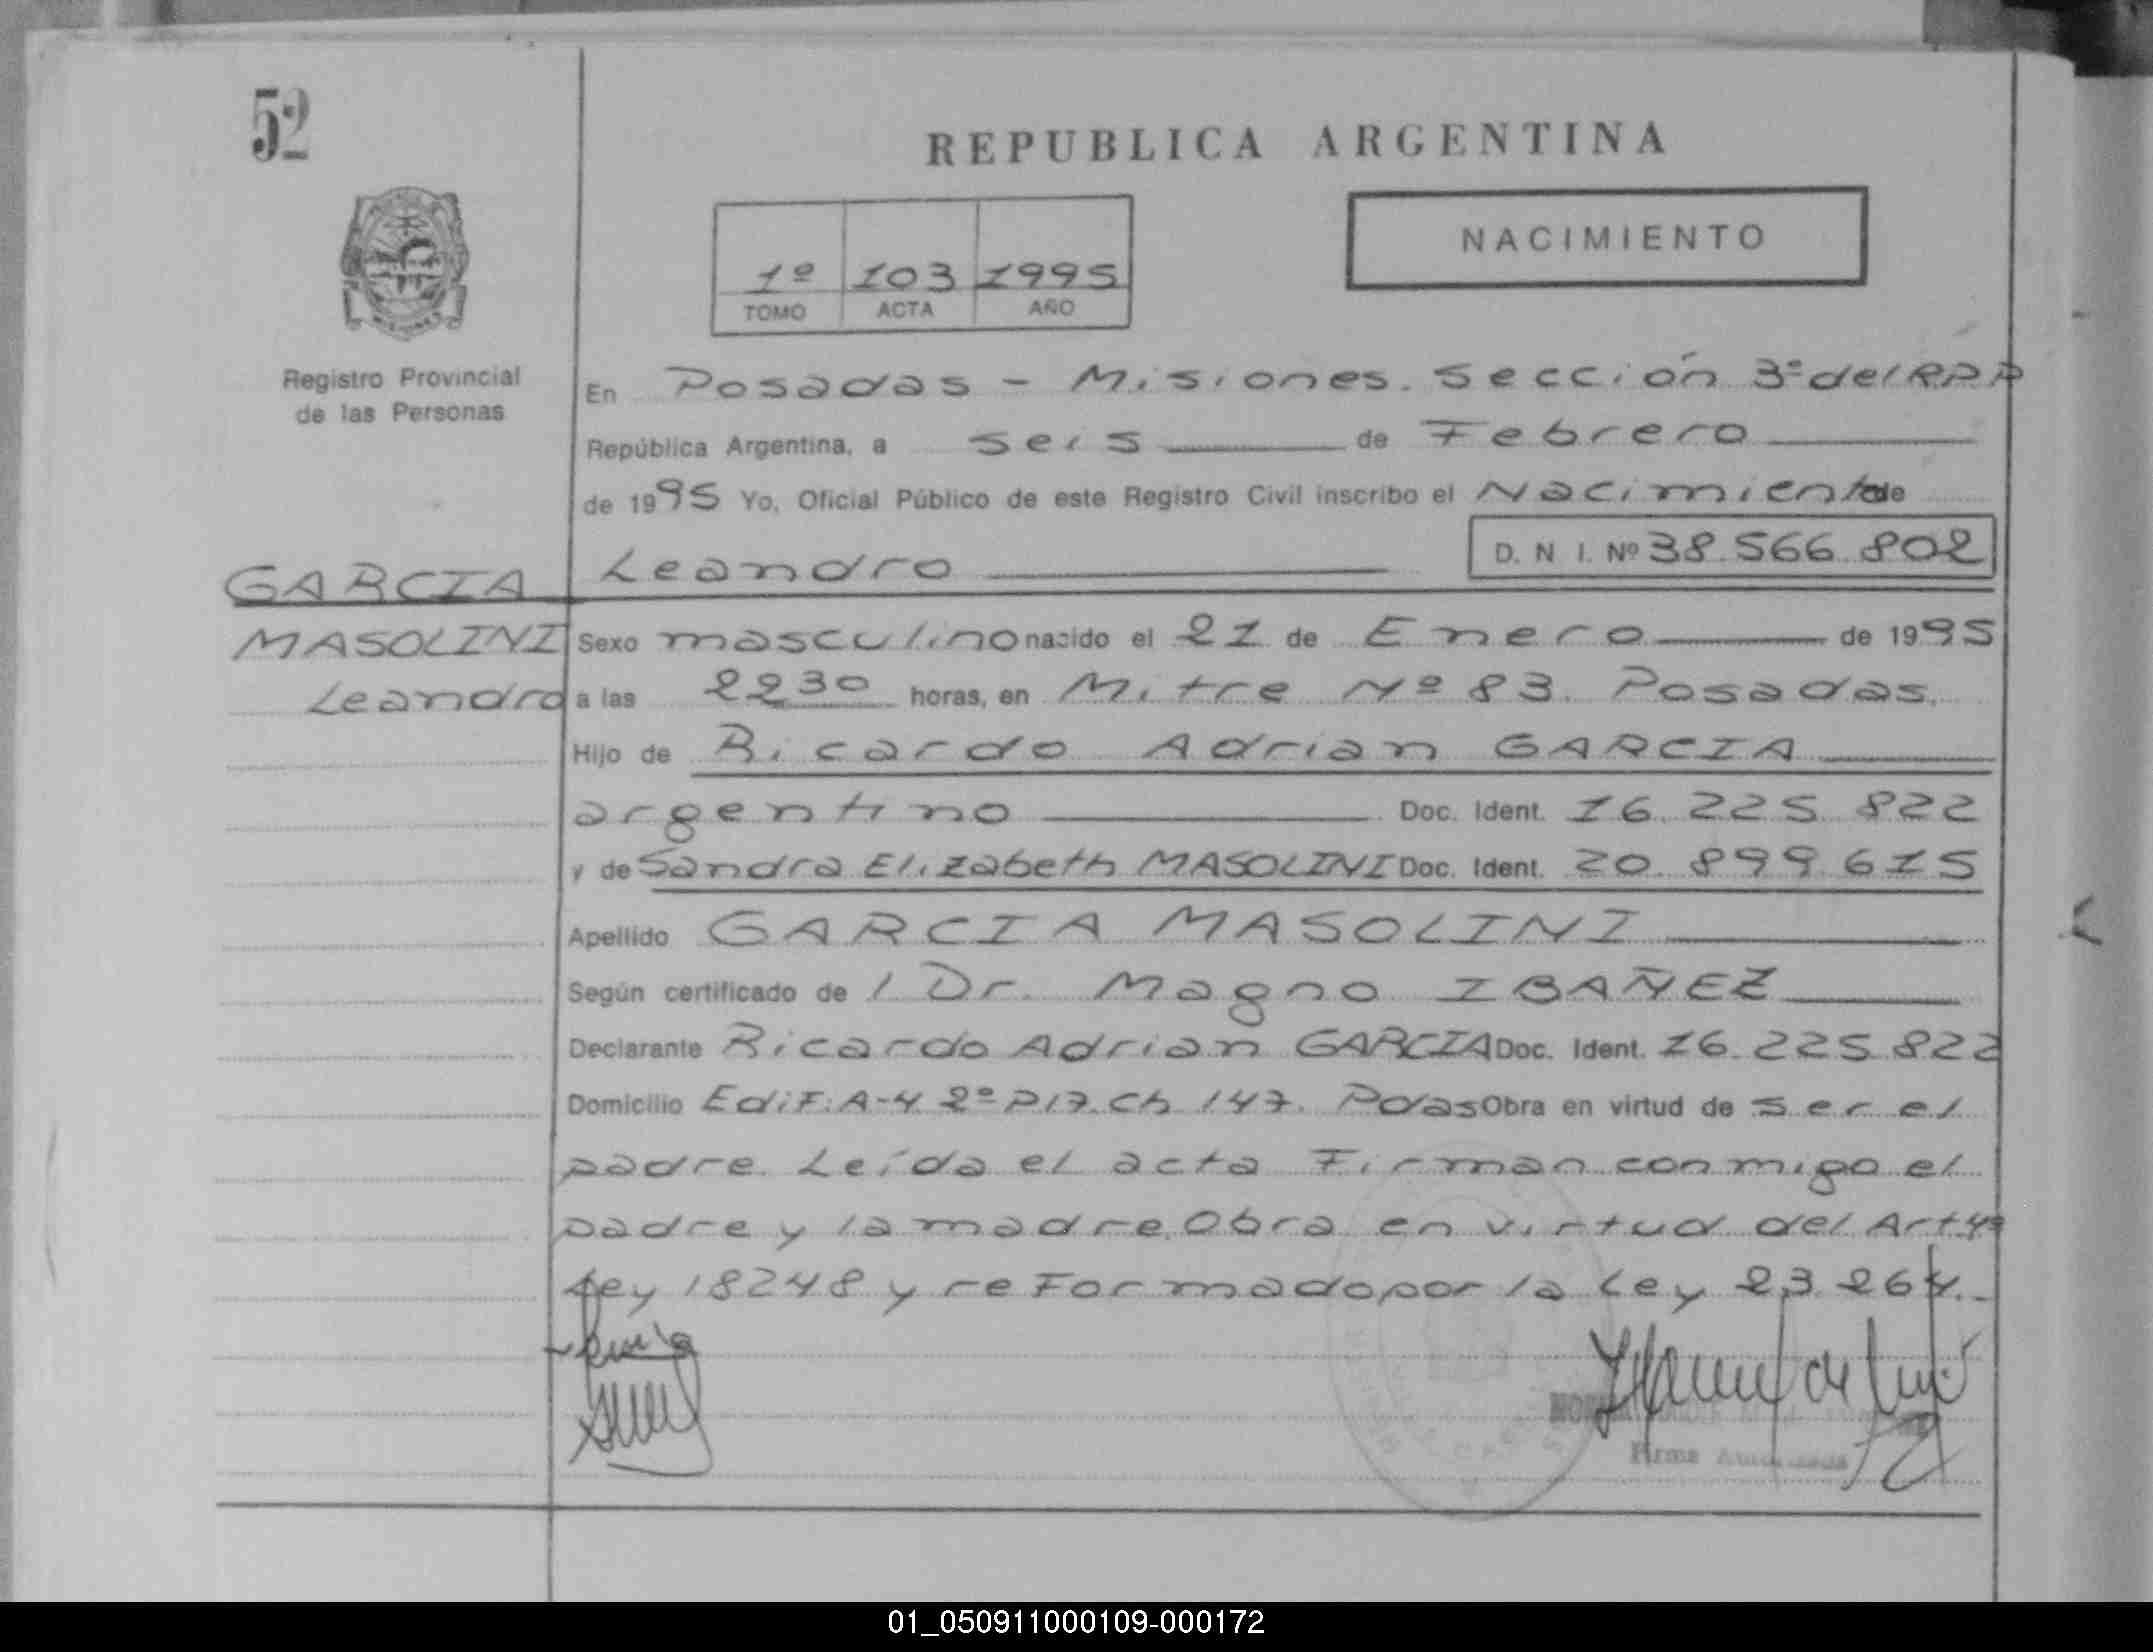 52
REPUBLICA ARGENTINA
NACIMIENTO
1º 103 1995
TOMO ACTA AÑO
Registro Provincial
de las Personas
En Posadas - Misiones. Sección 3ª del RPP
República Argentina, a seis de Febrero
de 1995 Yo, Oficial Público de este Registro Civil inscribo el Nacimiento de
Leandro D. N. I. Nº 38.566.802
GARCIA
MASOLINI
Leandro
Sexo masculino nacido el 21 de Enero de 1995
a las 22 30 horas, en Mitre Nº 83. Posadas.
Hijo de Ricardo Adrian GARCIA
argentino Doc. Ident. 16.225.822
y de Sandra Elizabeth MASOLINI Doc. Ident. 20.899.615
Apellido GARCIA MASOLINI
Según certificado de / Dr. Magno IBAÑEZ
Declarante Ricardo Adrian GARCIA Doc. Ident. 16.225.822
Domicilio Edif. A-4 2º P17. Ch 147. Pdas Obra en virtud de ser el
padre. Leída el acta Firman conmigo el
padre y la madre. Obra en virtud del Art 4º
Ley 18248 y reformado por la Ley 23.264.-
Firma Autorizada
01_050911000109-000172